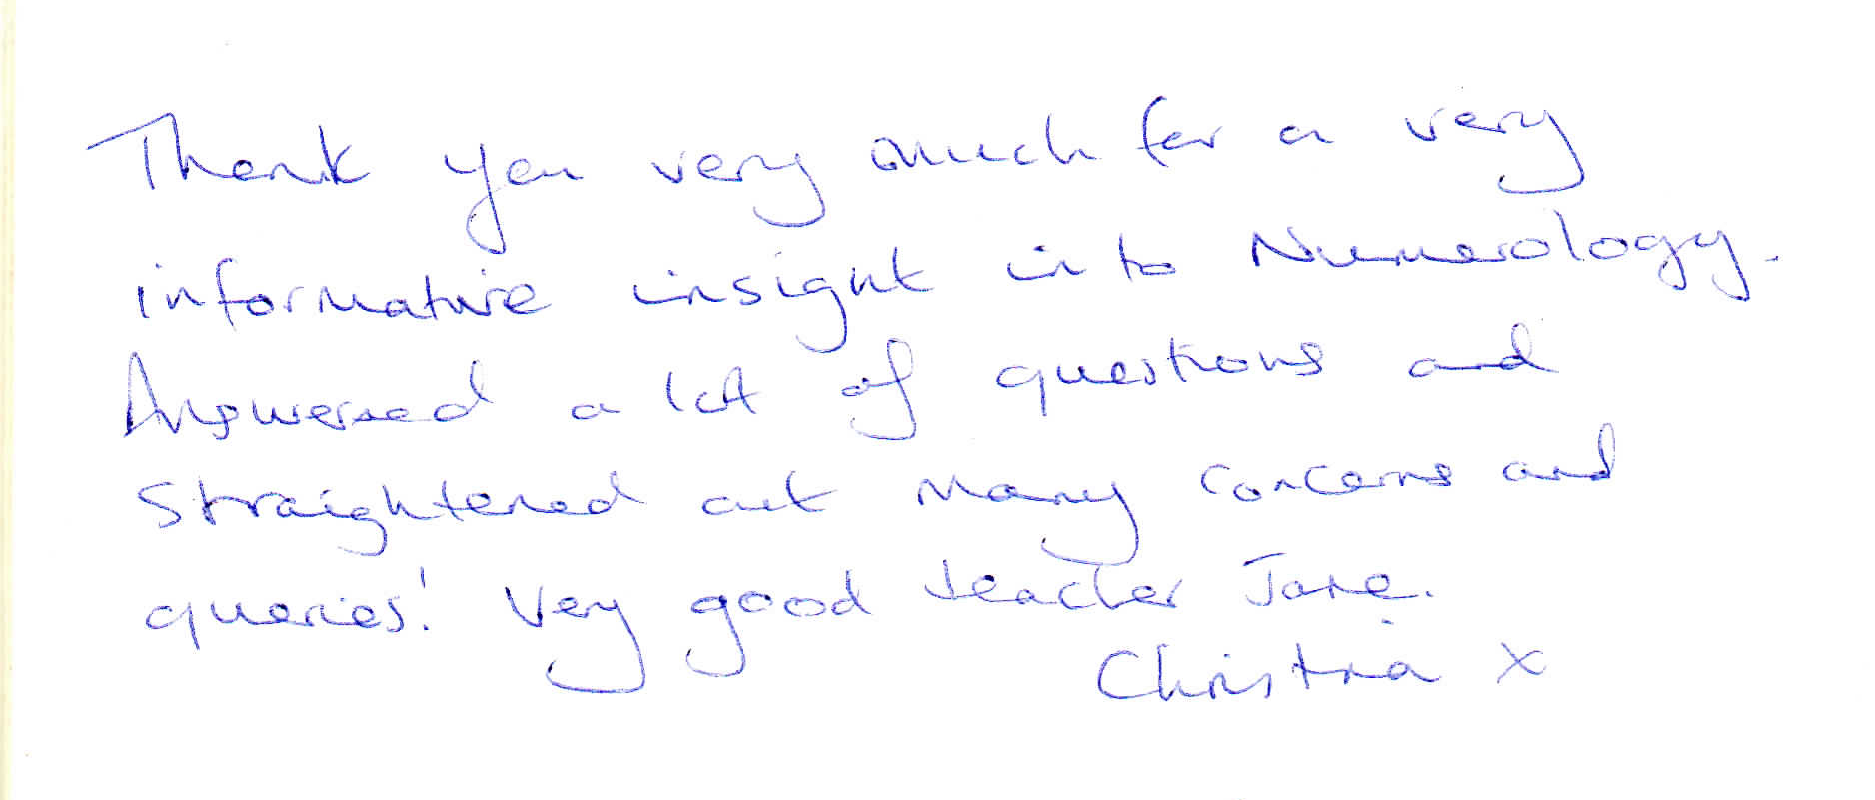 Thank you very much for a very
informative insight into Numerology.
Answered a lot of questions and
straightened out many concerns and
queries! Very good teacher Jane.
Christina x